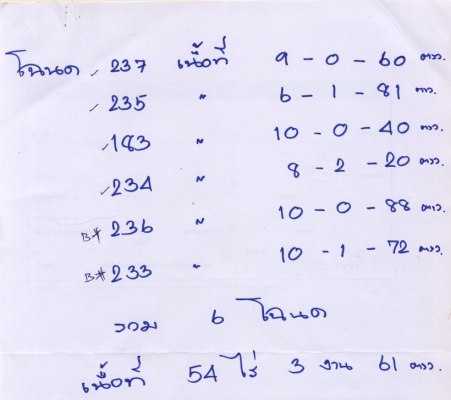 โฉนด ✓ 237 เนื้อที่ 9 - 0 - 60 ตรว.
✓ 235 " 6 - 1 - 81 ตรว.
✓ 183 " 10 - 0 - 40 ตรว.
✓ 234 " 8 - 2 - 20 ตรว.
B* 236 " 10 - 0 - 88 ตรว.
B* 233 " 10 - 1 - 72 ตรว.
รวม 6 โฉนด
เนื้อที่ 54 ไร่ 3 งาน 61 ตรว.